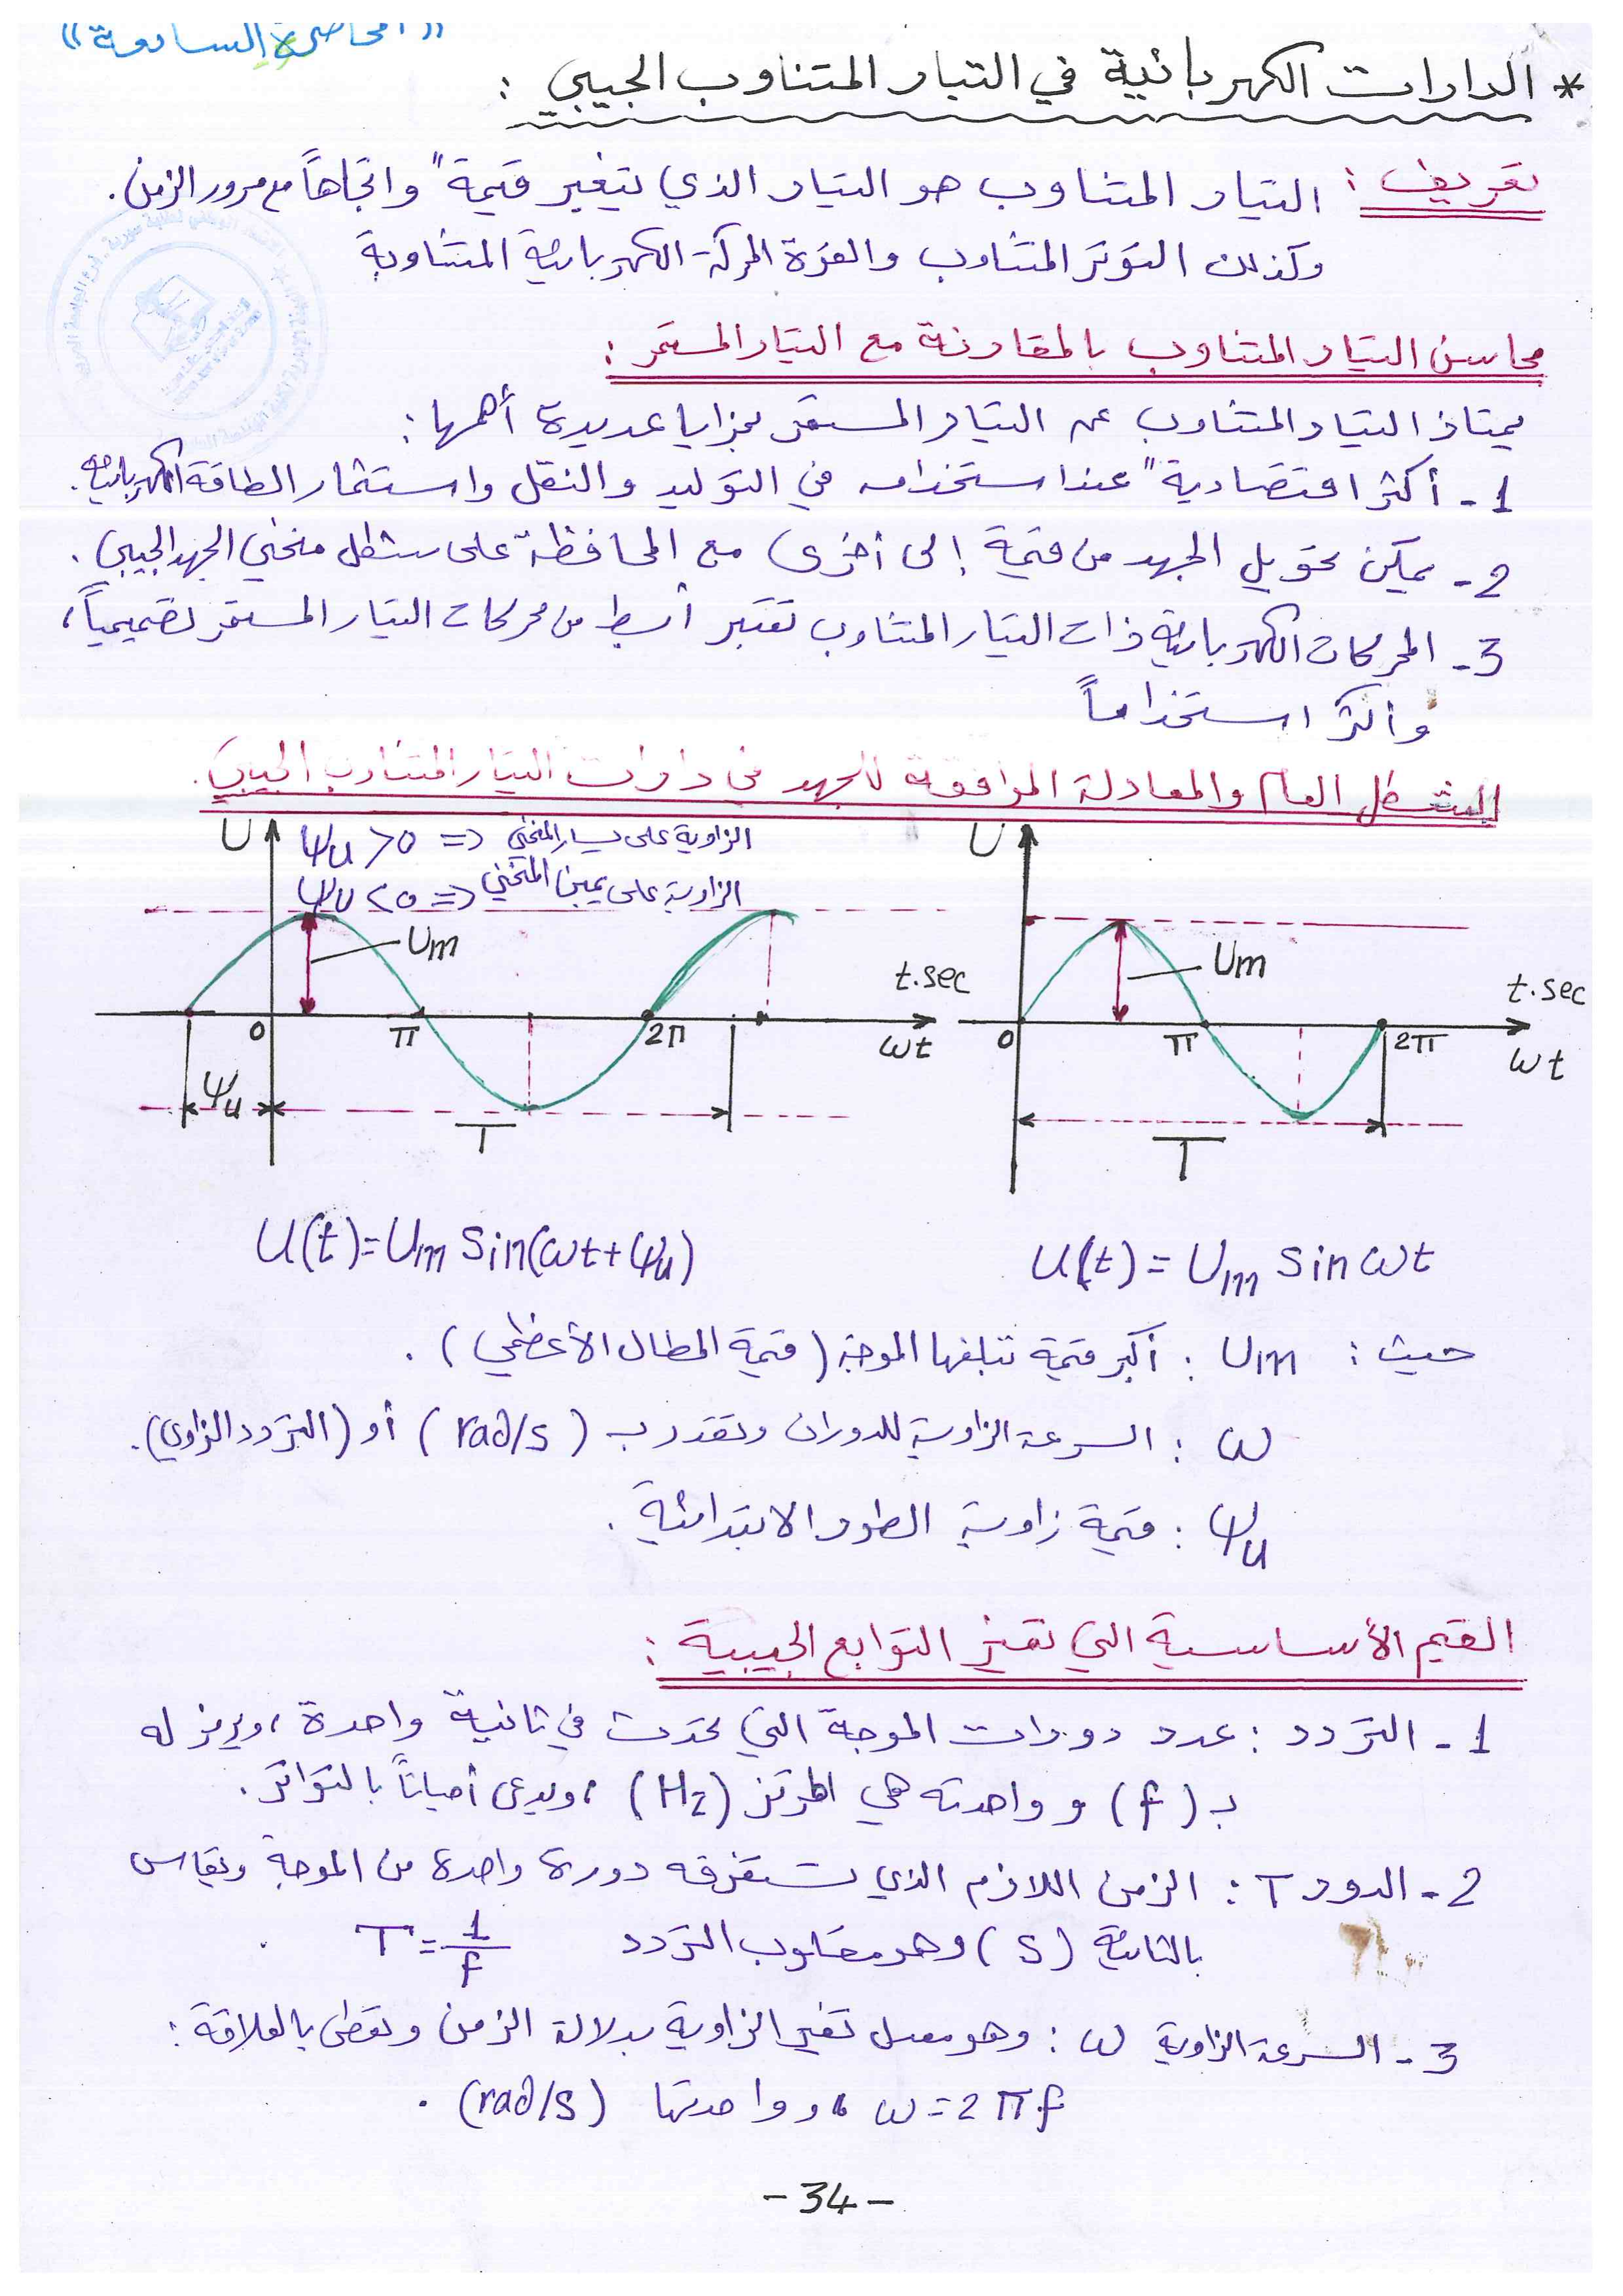 "المحاضرة السابعة"
* الدارات الكهربائية في التيار المتناوب الجيبي :
تعريف : التيار المتناوب هو التيار الذي يتغير قيمةً واتجاهاً مع مرور الزمن.
وكذلك التوتر المتناوب والقوة المحركة الكهربائية المتناوبة
محاسن التيار المتناوب بالمقارنة مع التيار المستمر :
يمتاز التيار المتناوب عن التيار المستمر بمزايا عديدة أهمها :
1- أكثر اقتصاديةً عند استخدامه في التوليد والنقل واستثمار الطاقة الكهربائية.
2- يمكن تحويل الجهد من قيمة إلى أخرى مع المحافظة على شكل منحني الجهد الجيبي.
3- المحركات الكهربائية ذات التيار المتناوب تعتبر أبسط من محركات التيار المستمر تصميمياً،
وأكثر استخداماً
الشكل العام والمعادلة الموافقة للجهد في دارات التيار المتناوب الجيبي.
U
Ψu > 0 => الزاوية على يسار المنحني
Ψu < 0 => الزاوية على يمين المنحني
Um
t.sec
0
π
2π
ωt
Ψu
T
U
Um
t.sec
0
π
2π
ωt
T
U(t)=Um sin(ωt+Ψu)
U(t)= Um sin ωt
حيث : Um : أكبر قيمة تبلغها الموجة (قيمة المطال الأعظمي).
ω : السرعة الزاوية للدوران وتقدر بـ (rad/s) أو (التردد الزاوي).
Ψu : قيمة زاوية الطور الابتدائية.
القيم الأساسية التي تميز التوابع الجيبية :
1- التردد : عدد دورات الموجة التي تحدث في ثانية واحدة، ويرمز له
بـ (f) وواحدته هي الهرتز (Hz)، ويدعى أحياناً بالتواتر.
2- الدور T : الزمن اللازم الذي تستغرقه دورة واحدة من الموجة ويقاس
بالثانية (s) وهو مقلوب التردد T=1/f
3- السرعة الزاوية ω : وهو معدل تغير الزاوية بدلالة الزمن وتعطى بالعلاقة :
ω=2πf، وواحدتها (rad/s).
-34-